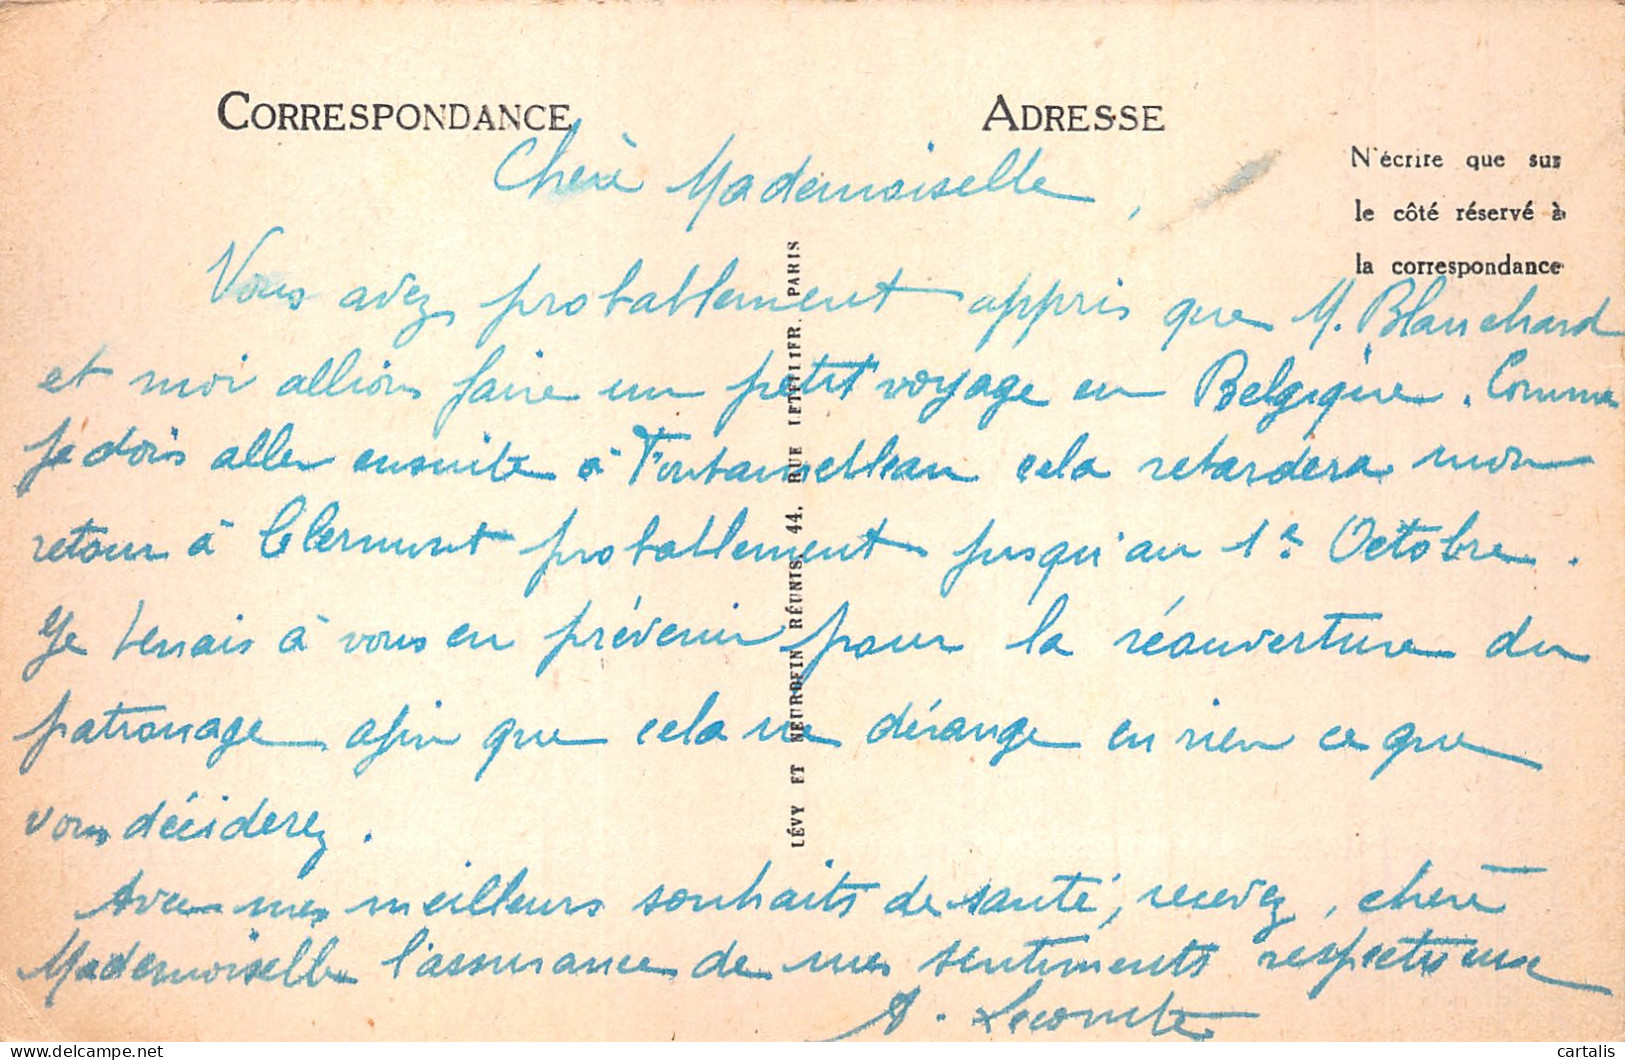 CORRESPONDANCE
ADRESSE
N'écrire que sur
le côté réservé à
la correspondance
Chère Mademoiselle,
Vous avez probablement appris que M. Blanchard
et moi allions faire un petit voyage en Belgique. Comme
je dois aller ensuite à Fontainebleau cela retardera mon
retour à Clermont probablement jusqu'au 1er Octobre.
Je tenais à vous en prévenir pour la réouverture du
patronage afin que cela ne dérange en rien ce que
vous déciderez.
Avec mes meilleurs souhaits de santé, recevez, chère
Mademoiselle l'assurance de mes sentiments respectueux
A. Lecomte
LÉVY ET NEURDEIN RÉUNIS, 44, RUE LETELLIER, PARIS
cartalis